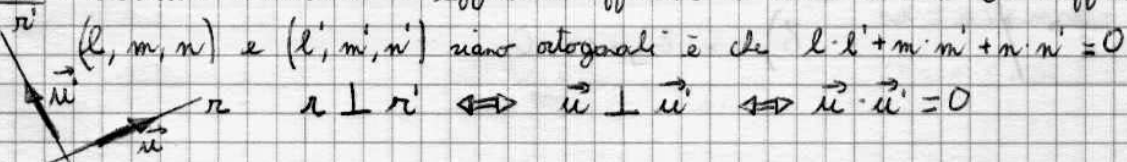 r'
(l, m, n) e (l', m', n') siano ortogonali è che l·l' + m·m' + n·n' = 0
u⃗' r r ⊥ r' ⟺ u⃗ ⊥ u⃗' ⟺ u⃗ · u⃗' = 0
u⃗